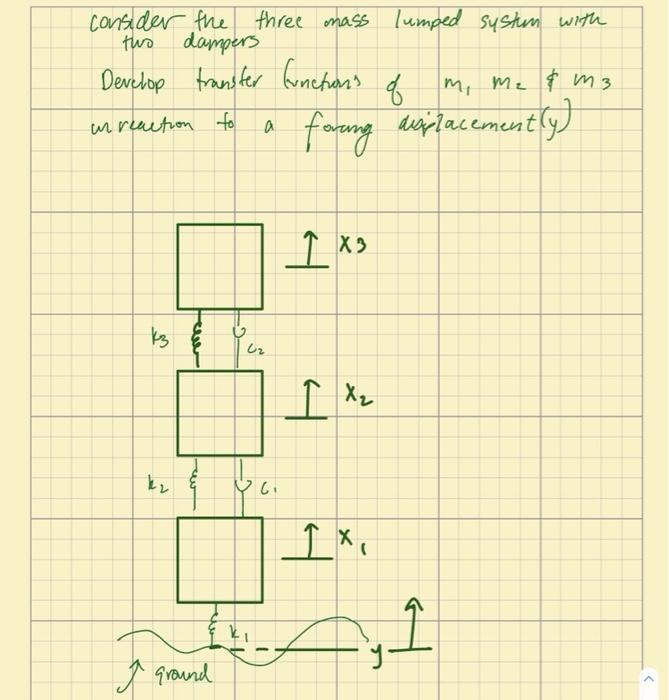 consider the three mass lumped system with
two dampers
Develop transfer functions of m1 m2 & m3
in reaction to a forcing displacement(y)
x3
k3
c2
x2
k2
c1
x1
k1
y
ground